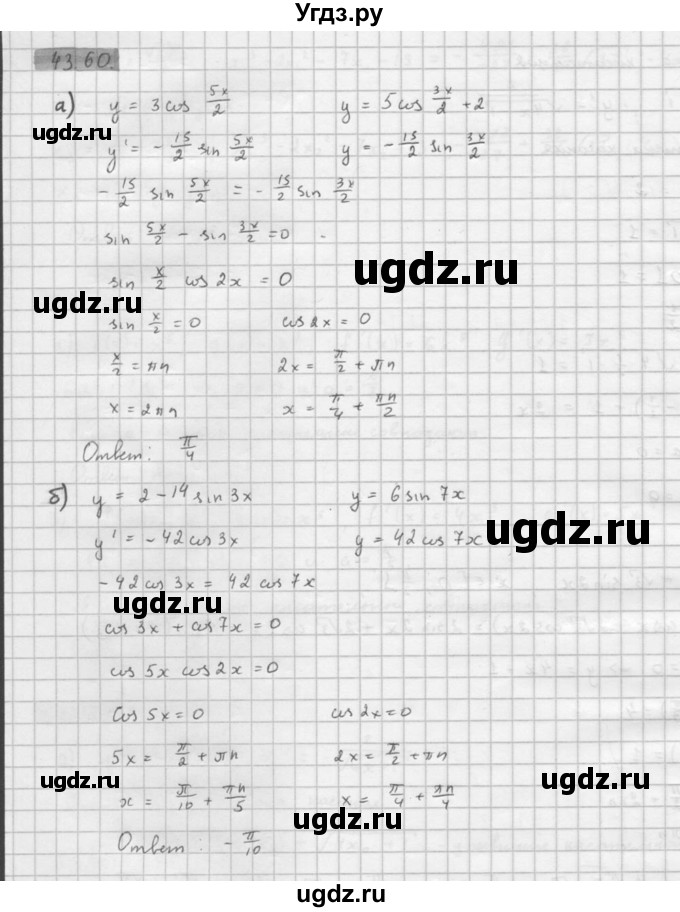 Угдз.ру
43.60.
а) y = 3 cos 5x/2    y = 5 cos 3x/2 + 2
y' = - 15/2 sin 5x/2    y = - 15/2 sin 3x/2
- 15/2 sin 5x/2 = - 15/2 sin 3x/2
sin 5x/2 - sin 3x/2 = 0
ugdz.ru
sin x/2 cos 2x = 0
ugdz.ru
sin x/2 = 0    cos 2x = 0
x/2 = πn    2x = π/2 + πn
x = 2πn    x = π/4 + πn/2
Ответ: π/4
б) y = 2 - 14 sin 3x    y = 6 sin 7x
y' = - 42 cos 3x    y = 42 cos 7x
ugdz.ru
- 42 cos 3x = 42 cos 7x
ugdz.ru
cos 3x + cos 7x = 0
cos 5x cos 2x = 0
cos 5x = 0    cos 2x = 0
5x = π/2 + πn    2x = π/2 + πn
ugdz.ru    ugdz.ru
x = π/10 + πn/5    x = π/4 + πn/4
ugdz.ru
Ответ: - π/10
ugdz.ru
ugdz.ru
ugdz.ru
Угдз.ру